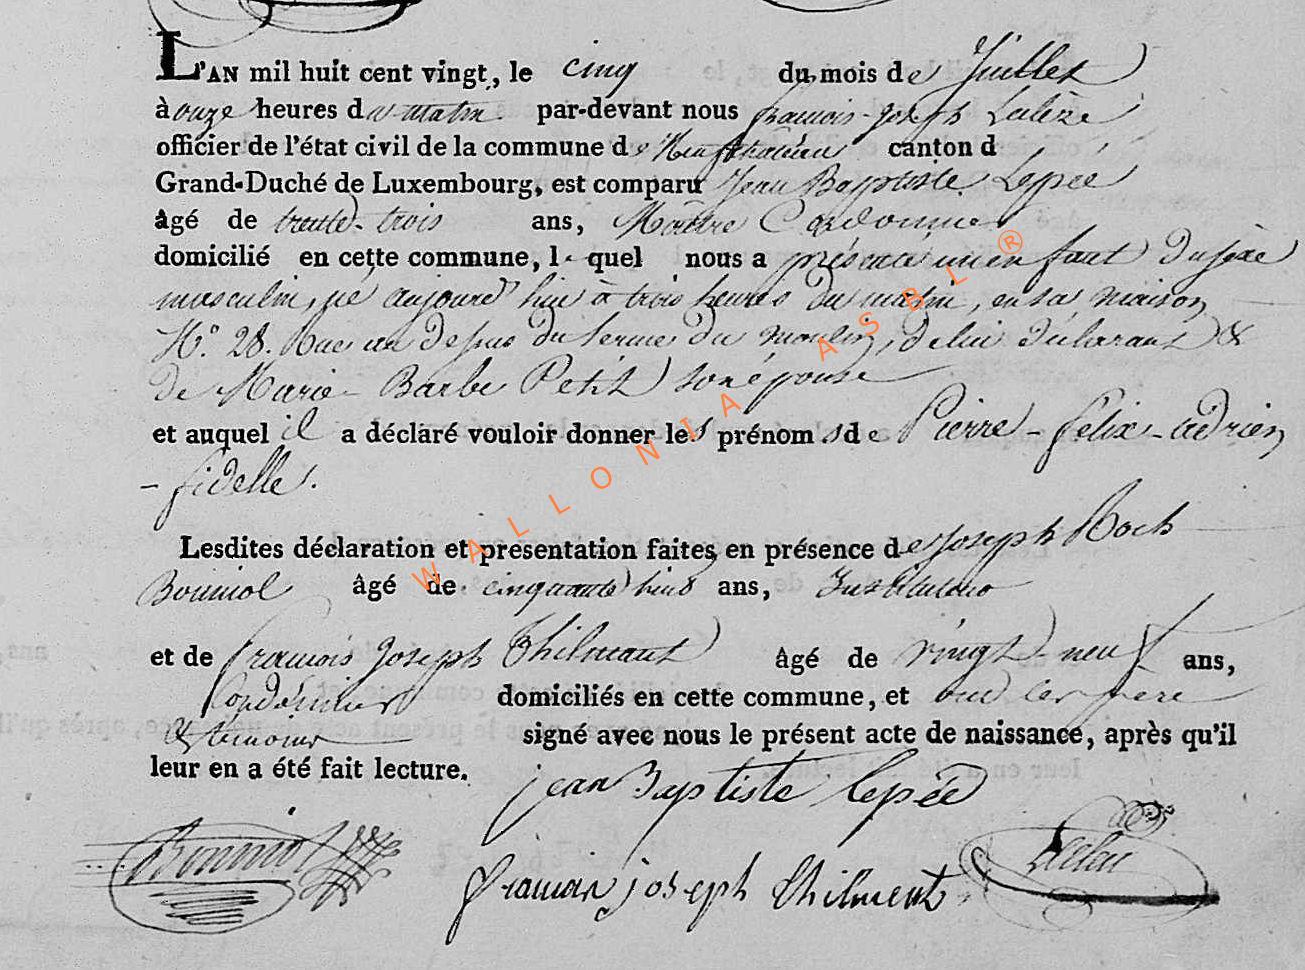 L'AN mil huit cent vingt, le cinq du mois de Juillet
à onze heures du matin par-devant nous françois-joseph
officier de l'état civil de la commune de Neufchateau canton d
Grand-Duché de Luxembourg, est comparu Jean Baptiste Lepée
âgé de trente-trois ans, Maître Cordonnier
domicilié en cette commune, lequel nous a présenté un enfant du sexe
masculin, né aujourd'hui à trois heures du matin, en sa maison,
N.° 28. Rue au dessus du du moulin, de lui déclarant &
de Marie-Barbe Petit son épouse
et auquel il a déclaré vouloir donner les prénoms de Pierre-félix-adrien
-fidelle.
Lesdites déclaration et présentation faites en présence de joseph Roch
Bonniol âgé de cinquante huit ans, Instituteur
et de françois Joseph Thilmant âgé de vingt neuf ans,
Cordonnier domiciliés en cette commune, et ont les père
& témoins signé avec nous le présent acte de naissance, après qu'il
leur en a été fait lecture.
jean Baptiste lepée
Bonniol
francoix joseph thilment
WALLONIA ASBL ®